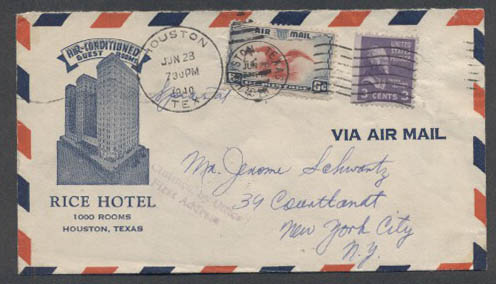 AIR-CONDITIONED
GUEST ROOMS
HOUSTON
JUN 23
7 30 PM
1940
TEX
AIR MAIL
6¢
UNITED STATES
3 CENTS 3
VIA AIR MAIL
Special
Mr. Jerome Schwartz
39 Courtlandt
New York City
N.Y.
First Address
RICE HOTEL
1000 ROOMS
HOUSTON, TEXAS